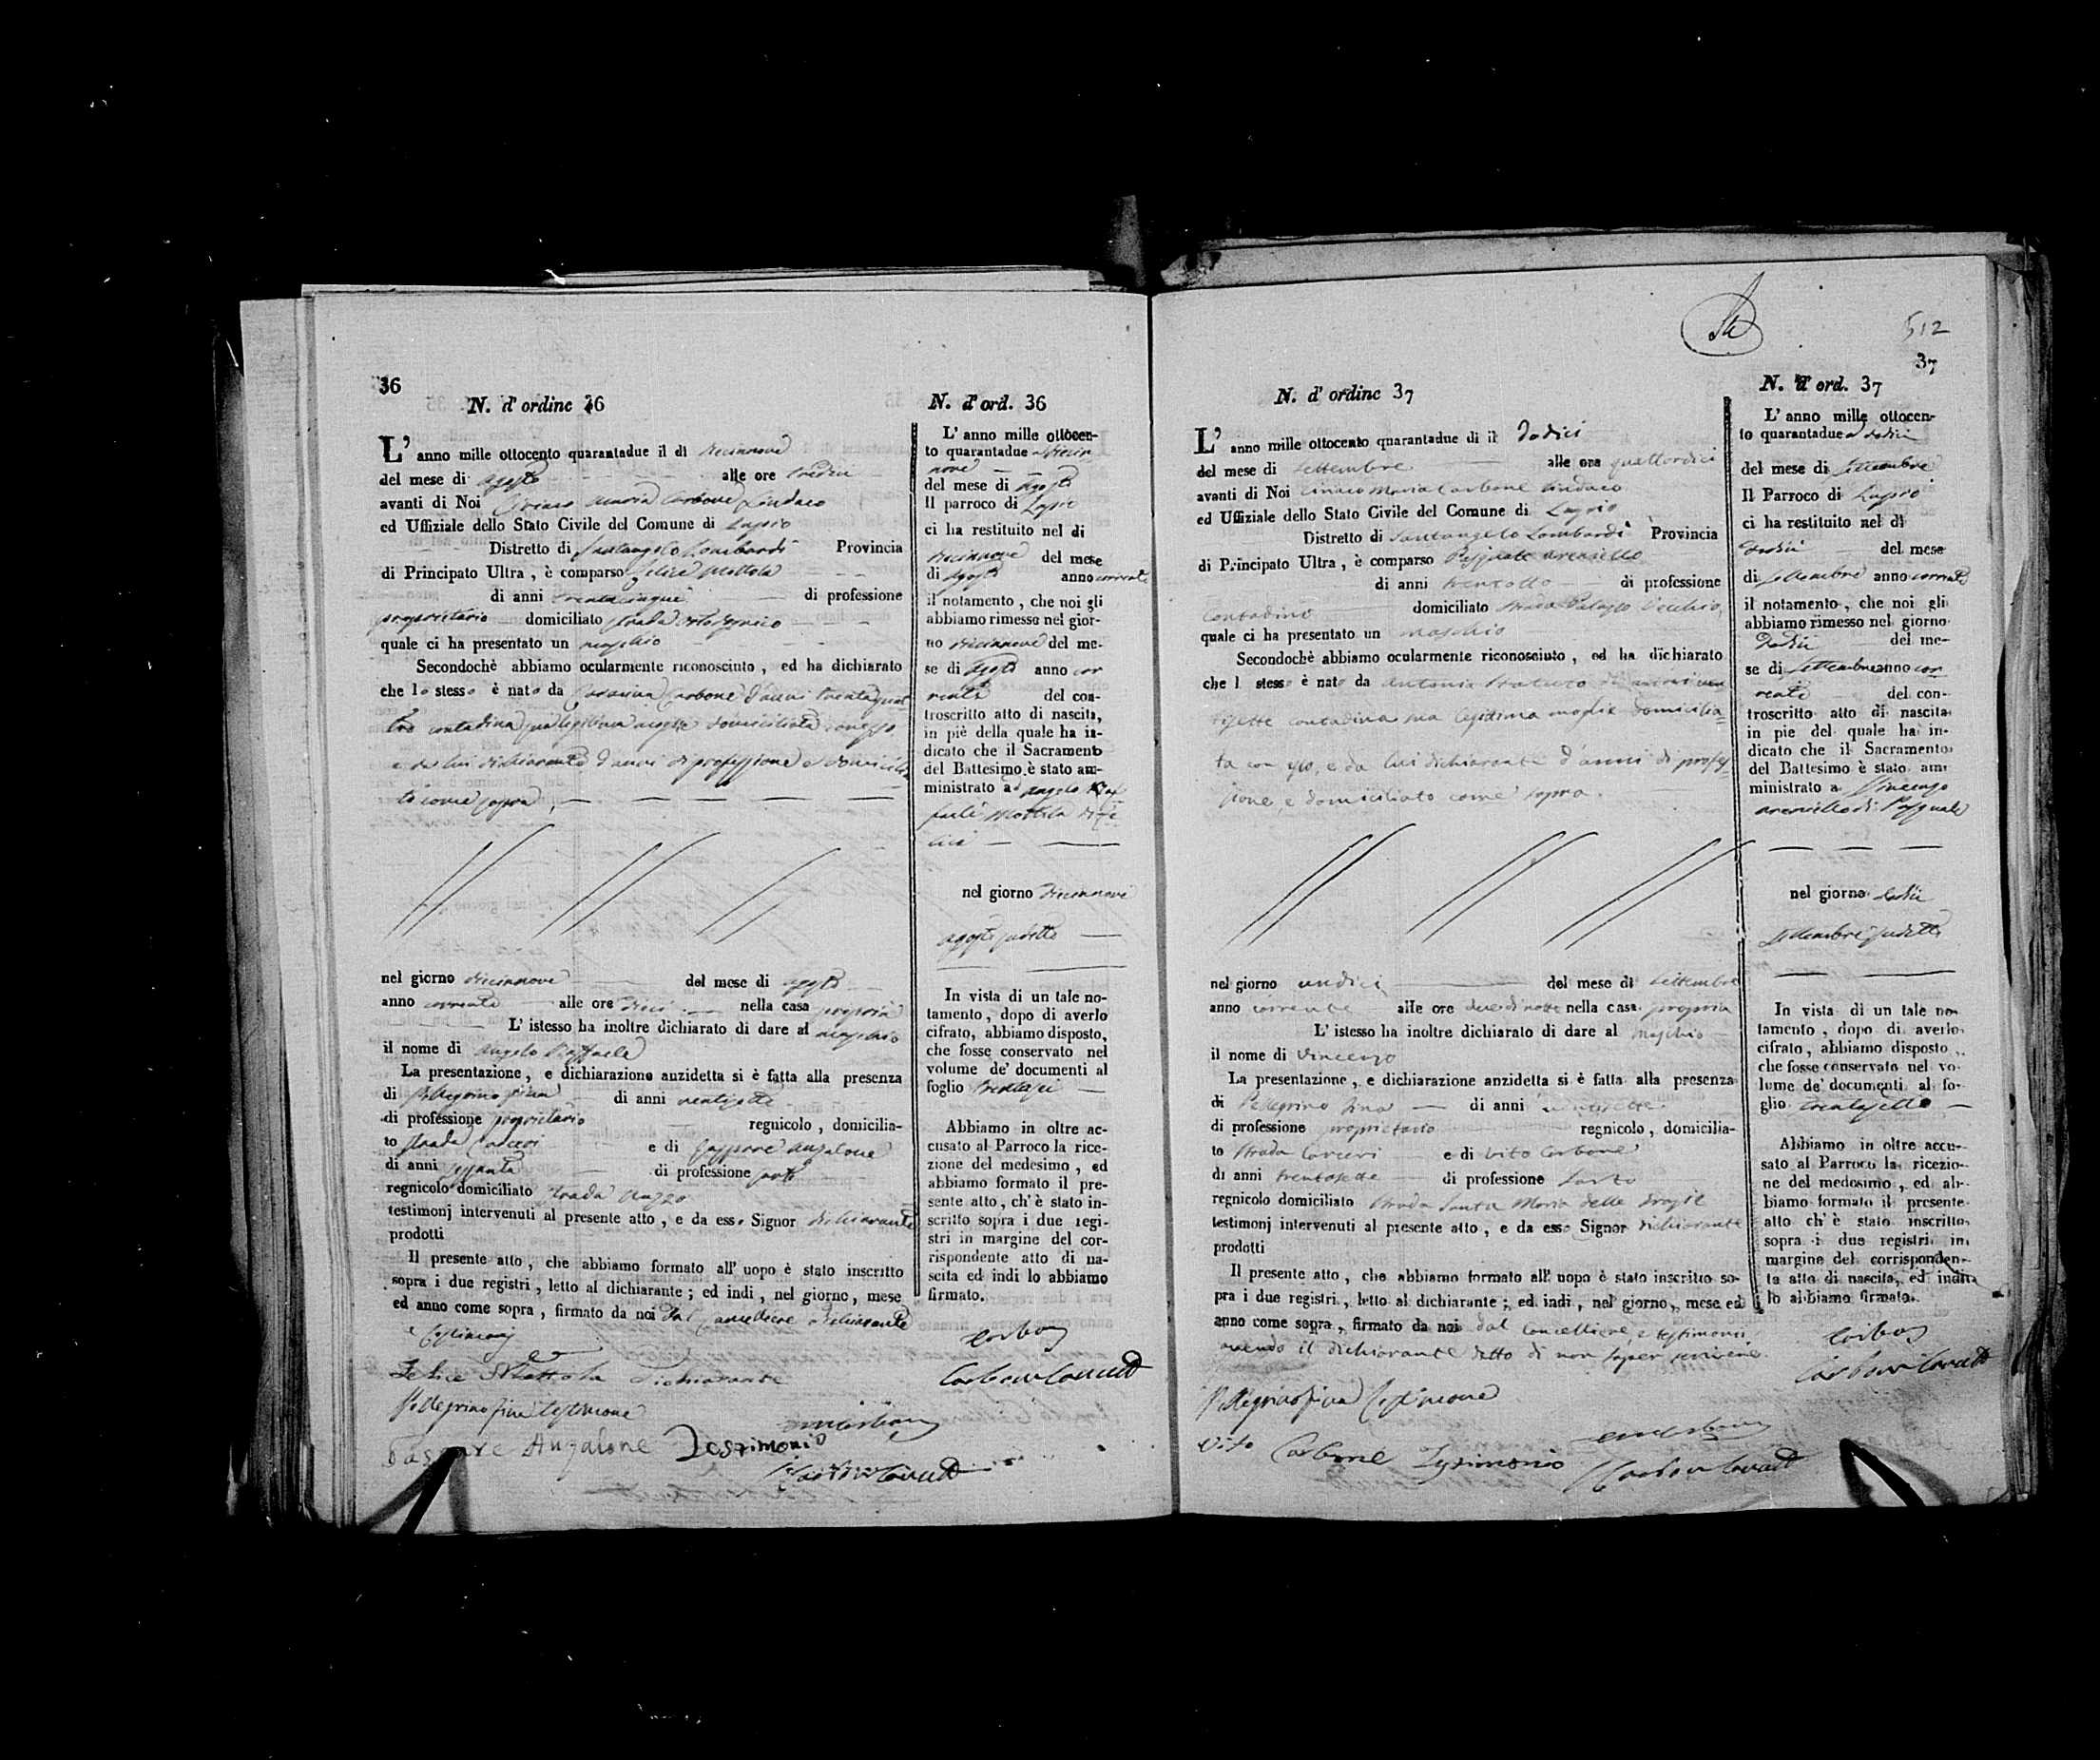 36
N. d' ordine 36
L' anno mille ottocento quarantadue il di diecinnove
del mese di agosto alle ore tredici
avanti di Noi Ciriaco Maria Carbone Sindaco
ed Uffiziale dello Stato Civile del Comune di
Distretto di Santangelo Lombardi Provincia
di Principato Ultra , è comparso Felice Mottola
di anni trentacinque di professione
proprietario domiciliato strada
quale ci ha presentato un maschio
Secondochè abbiamo ocularmente riconosciuto , ed ha dichiarato
che lo stesso è nato da Carbone d'anni trentaquat
tro contadina sua legittima moglie domiciliata con esso
e da lui dichiarante d'anni di professione e domicilia
to come sopra,
nel giorno diecinnove del mese di agosto
anno corrente alle ore dieci nella casa propria
L' istesso ha inoltre dichiarato di dare al maschio
il nome di Angelo Raffaele
La presentazione , e dichiarazione anzidetta si è fatta alla presenza
di Pellegrino Fina di anni ventisette
di professione proprietario regnicolo , domicilia-
to strada Carceri e di Gaspare Anzalone
di anni sessanta di professione
regnicolo domiciliato strada
testimonj intervenuti al presente atto , e da esso Signor dichiarante
prodotti
Il presente atto , che abbiamo formato all' uopo è stato inscritto
sopra i due registri , letto al dichiarante ; ed indi , nel giorno , mese
ed anno come sopra , firmato da noi dal Cancelliere dichiarante
e testimonj
Felice Mottola Dichiarante
Pellegrino Fina testimone
Gaspare Anzalone Testimonio
N. d' ord. 36
L' anno mille ottocen-
to quarantadue a diecin
nove
del mese di agosto
Il parroco di
ci ha restituito nel di
diecinnove del mese
di agosto anno corrente
il notamento , che noi gli
abbiamo rimesso nel gior-
no diecinnove del me-
se di agosto anno cor
rente del con-
troscritto atto di nascita,
in piè della quale ha in-
dicato che il Sacramento
del Battesimo è stato am-
ministrato ad Angelo Raf
faele Mottola di Fe
lice
nel giorno diecinnove
agosto sudetto
In vista di un tale no-
tamento , dopo di averlo
cifrato, abbiamo disposto,
che fosse conservato nel
volume de' documenti al
foglio trentasei
Abbiamo in oltre ac-
cusato al Parroco la rice-
zione del medesimo , ed
abbiamo formato il pre-
sente atto , ch' è stato in-
scritto sopra i due regi-
stri in margine del cor-
rispondente atto di na-
scita ed indi lo abbiamo
firmato.
512
37
N. d' ordine 37
L' anno mille ottocento quarantadue di il dodici
del mese di Settembre alle ore quattordici
avanti di Noi Ciriaco Maria Carbone Sindaco
ed Uffiziale dello Stato Civile del Comune di
Distretto di Santangelo Lombardi Provincia
di Principato Ultra , è comparso Pasquale
di anni trentotto di professione
Contadino domiciliato strada Palazzo Vecchio
quale ci ha presentato un maschio
Secondochè abbiamo ocularmente riconosciuto , ed ha dichiarato
che l stesso è nato da Antonia
contadina sua legittima moglie domicilia
ta con esso, e da lui dichiarante d'anni di profes
sione, e domiciliato come sopra.
nel giorno undici del mese di Settembre
anno corrente alle ore due di notte nella casa propria
L' istesso ha inoltre dichiarato di dare al maschio
il nome di Vincenzo
La presentazione , e dichiarazione anzidetta si è fatta alla presenza
di Pellegrino Fina di anni ventisette
di professione proprietario regnicolo , domicilia-
to strada Carceri e di Vito Carbone
di anni trentasette di professione Sarto
regnicolo domiciliato strada Santa Maria delle Grazie
testimonj intervenuti al presente atto , e da esso Signor dichiarante
prodotti
Il presente atto , che abbiamo formato all' uopo è stato inscritto so-
pra i due registri , letto al dichiarante ; ed indi , nel giorno , mese ed
anno come sopra , firmato da noi dal Cancelliere, e testimonii
avendo il dichiarante detto di non saper scrivere.
Pellegrino Fina testimone
Vito Carbone Testimonio
N. d' ord. 37
L' anno mille ottocen-
to quarantadue a dodici
del mese di Settembre
Il Parroco di
ci ha restituito nel dì
dodici del mese
di Settembre anno corrente
il notamento , che noi gli
abbiamo rimesso nel giorno
dodici del me-
se di Settembre anno cor
rente del con-
troscritto atto di nascita
in pie del quale ha in-
dicato che il Sacramento
del Battesimo è stato am-
ministrato a Vincenzo
di Pasquale
nel giorno dodici
Settembre sudetto
In vista di un tale no-
tamento , dopo di averlo
cifrato , abbiamo disposto ,
che fosse conservato nel vo-
lume de' documenti al fo-
glio trentasette
Abbiamo in oltre accu-
sato al Parroco la ricezio-
ne del medesimo , ed ab-
biamo formato il presente
atto ch' è stato inscritto
sopra i due registri in
margine del corrisponden-
te atto di nascita, ed indi
lo abbiamo firmato.